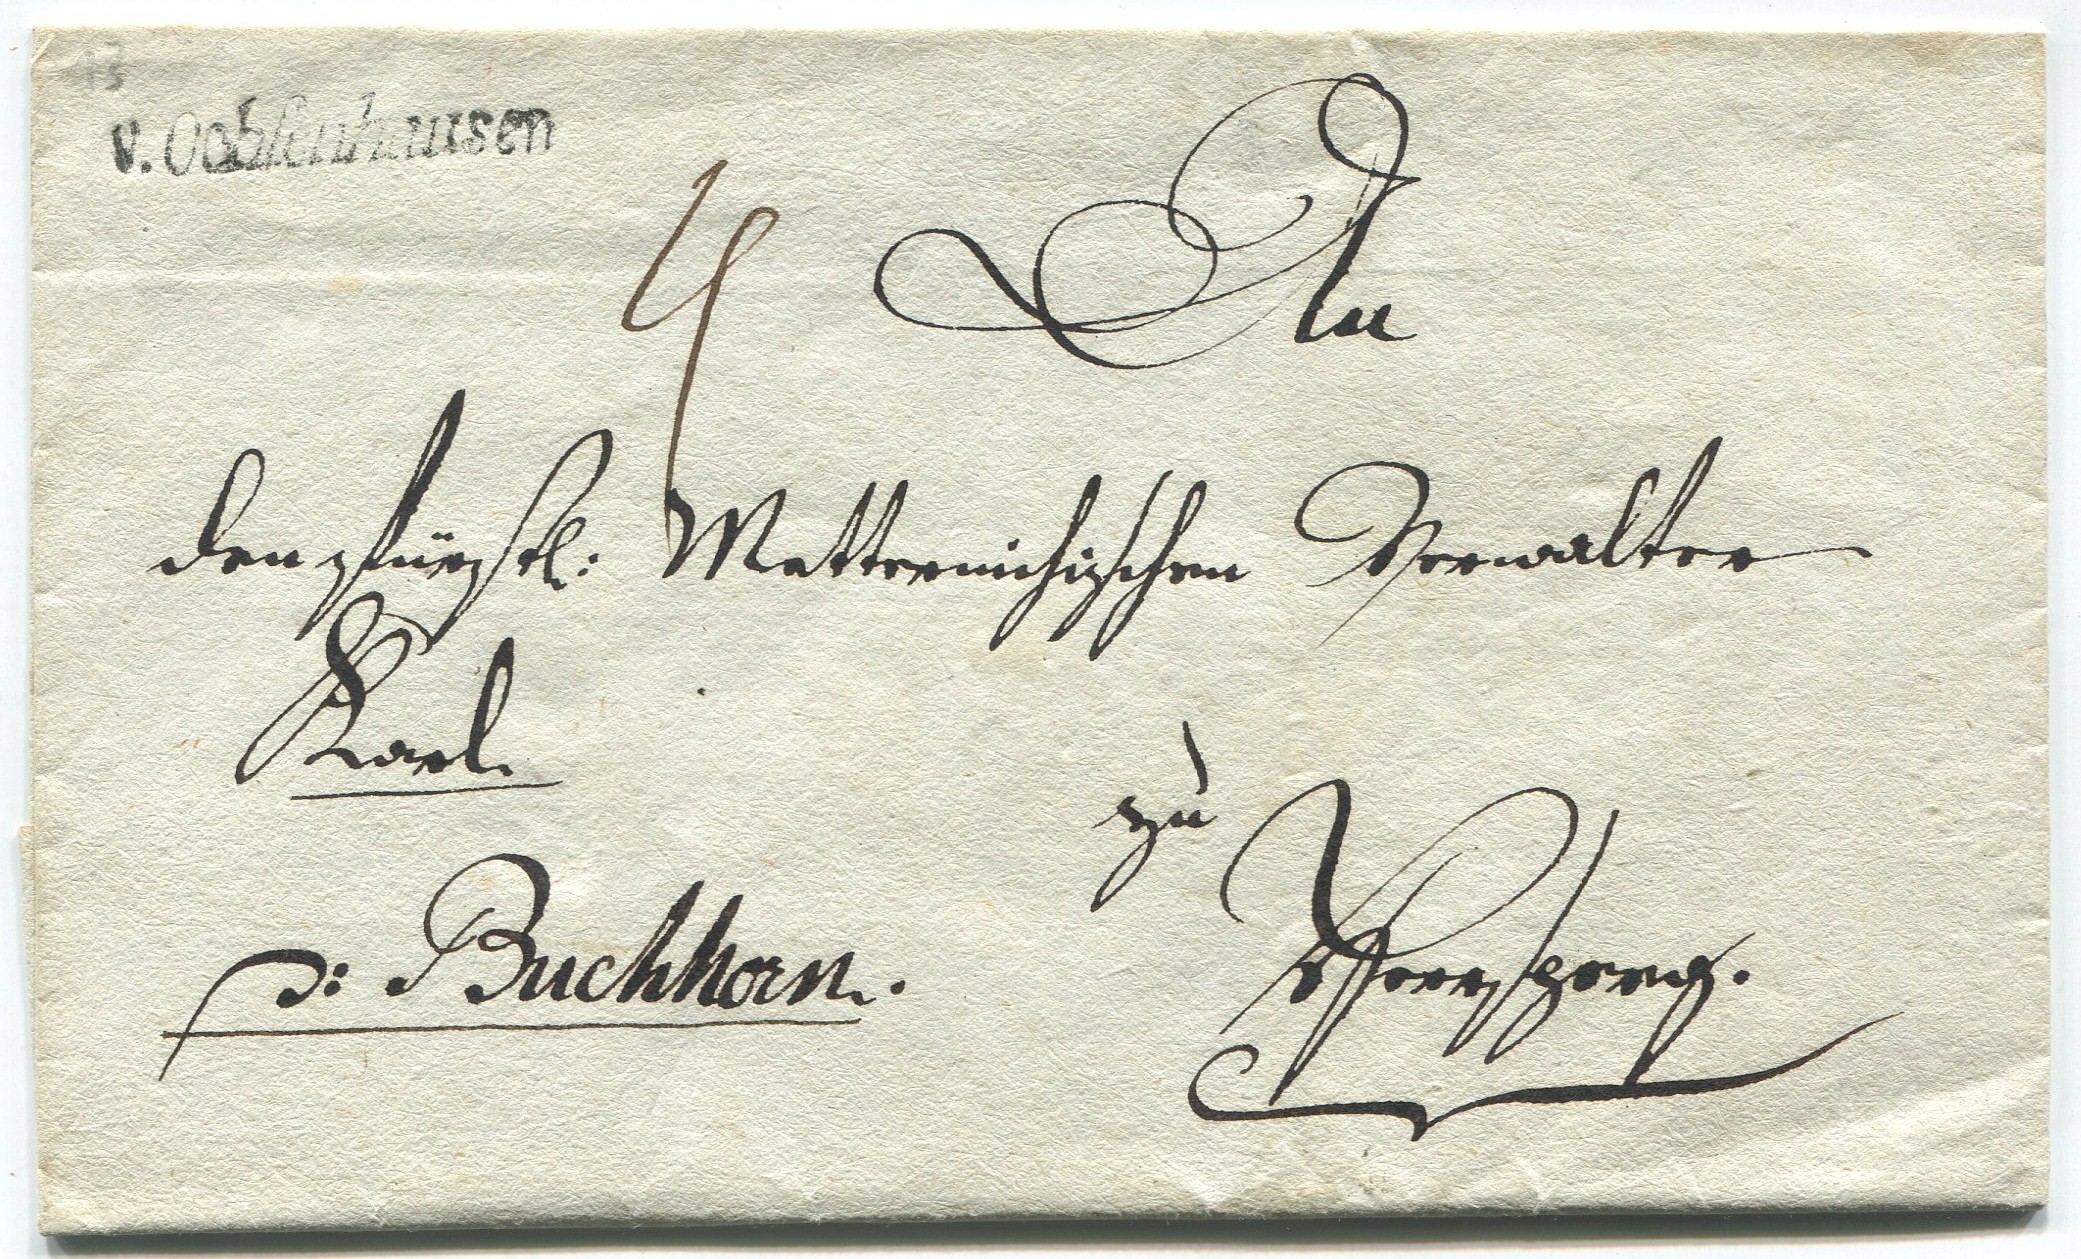 v. Ochsenhausen
4
An
den fürstl: Metternichischen Verwalter
Karl.
zu
p: Buchhorn.
Hersperg.